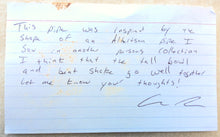 This pipe was inspired by the
shape of an Albertson pipe I
saw in another persons collection
I think that the tall bowl
and bent shake go well together
Let me know your thoughts!